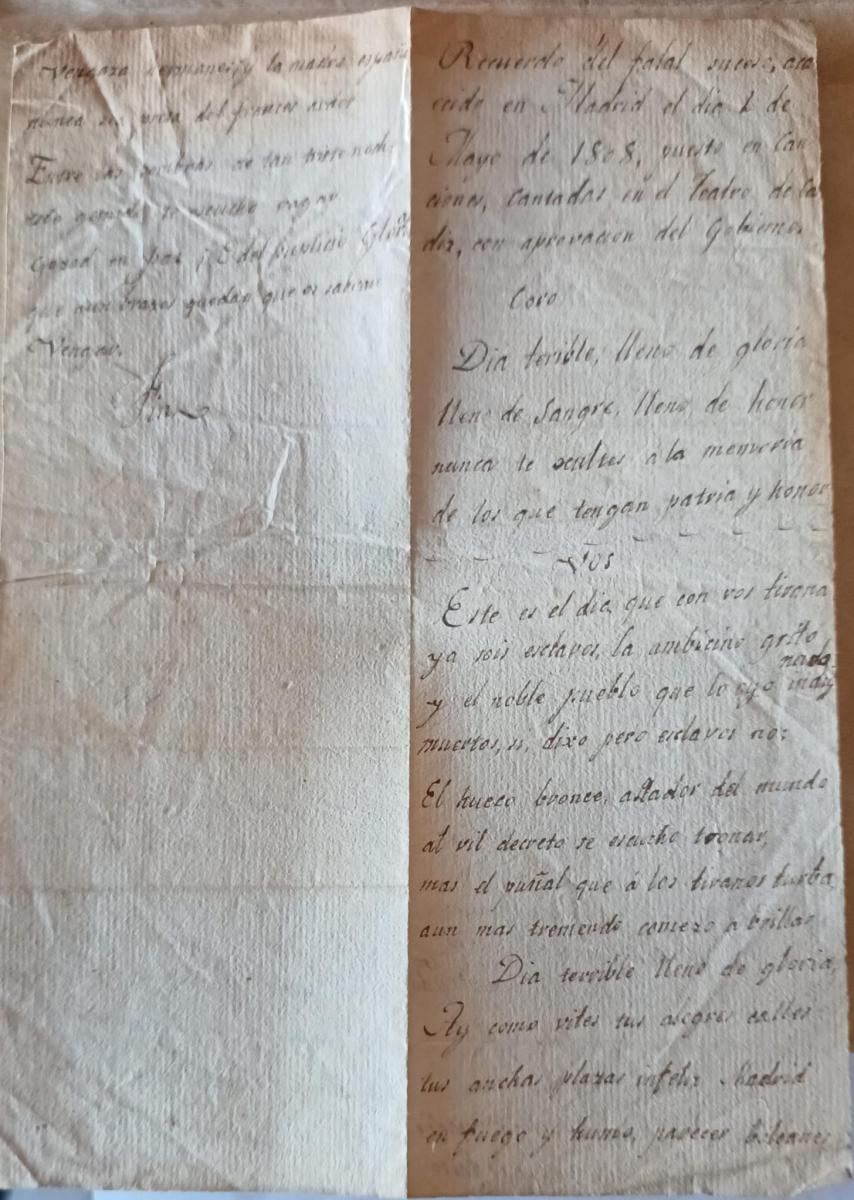 Venganza hermanos, y la madre españa
nunca sea presa del frances ardor
Entre las sombras de tan triste noche
este gemido se escucho vagar
Gozad en paz ¡O del suplicio Gloria
que aun brazos quedan que os sabran
Vengar.
Fin
Recuerdo del fatal suceso, aca
ecido en Madrid el dia 2 de
Mayo de 1808, puesto en Can
ciones, Cantadas en el Teatro de Ca
diz, con aprovacion del Gobierno
Coro
Dia terible, lleno de gloria
lleno de Sangre, lleno de honor
nunca te ocultes á la memoria
de los que tengan patria y honor
Vos
Este es el dia, que con vos tirana
ya sois esclavos, la ambicino grito
y el noble pueblo que lo oyo indig
nado
muertos, si, dixo pero esclavos no:
El hueco bronce, asolador del mundo
al vil decreto se escucho tronar,
mas el puñal que á los tiranos turba
aun mas tremendo comezo a brillar
Dia terrible lleno de gloria,
Ay como vites tus alegres calles
tus anchas plazas infeliz Madrid
en fuego y humo, parecer bolcanes